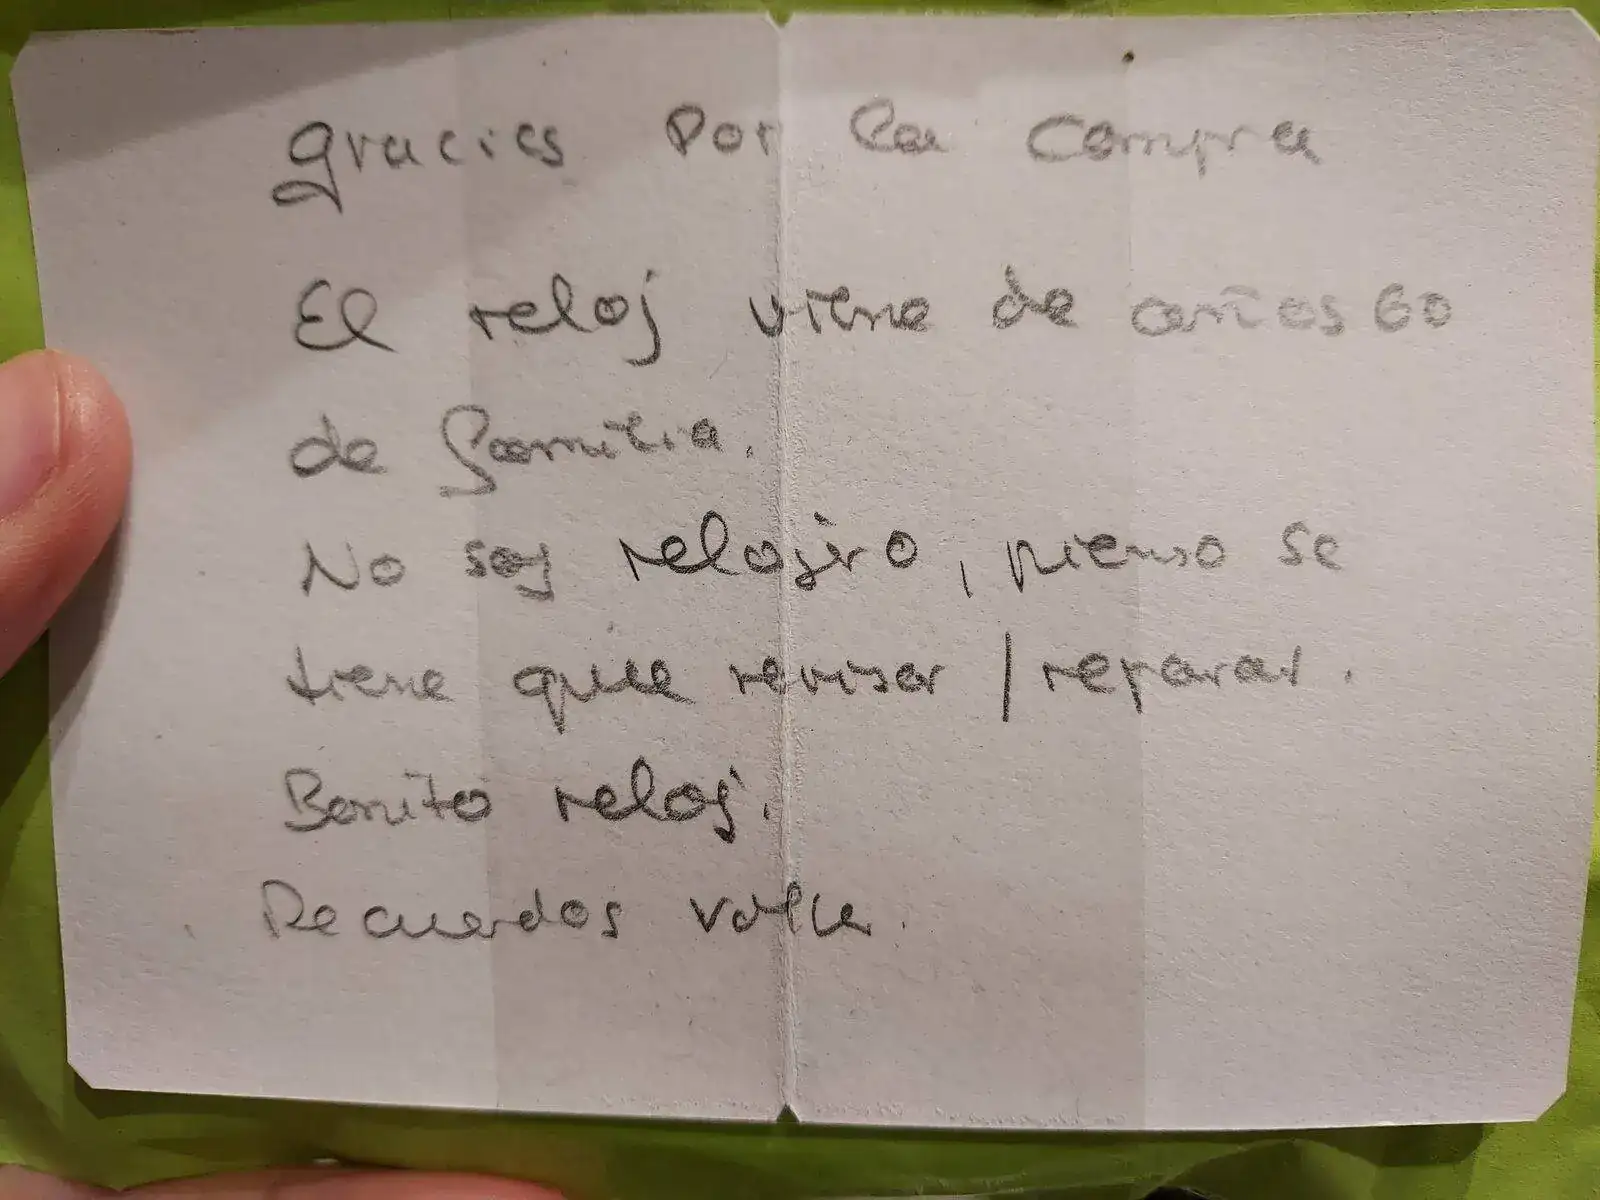 gracias Por la Compra
El reloj viene de años 60
de familia.
No soy relojro, pienso se
tiene que revisar / reparar.
Bonito reloj.
Recuerdos